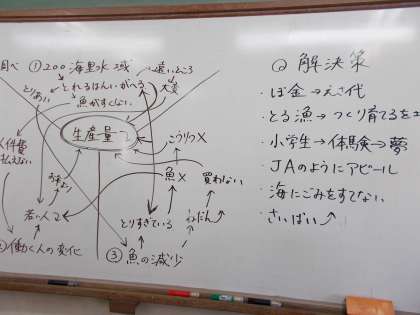 ①200海里水域
遠いところ
とれるはんいがへる
とりあい
大変
魚がすくない
生産量↘
こうりつ×
人件費
払えない
魚×
買わない
若い人
とりすぎている
ねだん↗
②働く人の変化
③魚の減少
◎解決策
・ぼ金→えさ代
・とる漁→つくり育てる
・小学生→体験→夢
・JAのようにアピール
・海にごみをすてない
・さいばい↗